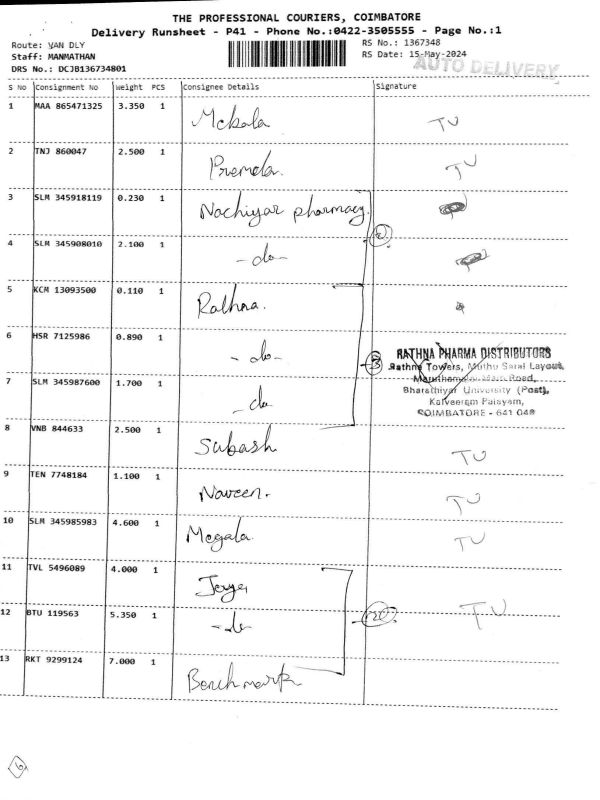 THE PROFESSIONAL COURIERS, COIMBATORE
Delivery Runsheet - P41 - Phone No.:0422-3505555 - Page No.:1
Route: VAN DLY RS No.: 1367348
Staff: MANMATHAN RS Date: 15-May-2024
AUTO DELIVERY
DRS No.: DCJB136734801
S No Consignment No Weight PCS Consignee Details Signature
1 MAA 865471325 3.350 1 Mekala TU
2 TNJ 860047 2.500 1 Premela. TU
3 SLM 345918119 0.230 1 Nachiyar pharmacy.
2
4 SLM 345908010 2.100 1 -do-
5 KCM 13093500 0.110 1 Rathna.
6 HSR 7125986 0.890 1 -do- 3
RATHNA PHARMA DISTRIBUTORS
Rathna Towers, Muthu Saral Layout,
Maruthamalai Main Road,
Bharathiyar University (Post),
Kalveeram Palayam,
COIMBATORE - 641 046
7 SLM 345987600 1.700 1 -do-
8 VNB 844633 2.500 1 Subash TU
9 TEN 7748184 1.100 1 Naveen. TU
10 SLM 345985983 4.600 1 Megala. TU
11 TVL 5496089 4.000 1
12 BTU 119563 5.350 1 -do- TU
13 RKT 9299124 7.000 1 Benchmark
6